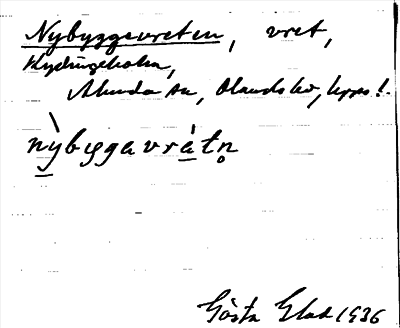 Nybyggevreten, vret,
Kydingeholm,
Alunda sn, Olands hd, Uppl.
nỳbyggavràtn̥
Gösta Glad 1936